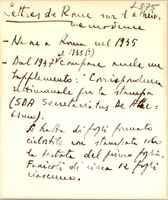 L375
Lettres de Rome sur l'athéisme
moderne
- Nasce a Roma nel 1935
o 1935 (?)
- Dal 1937 compare anche un
supplemento: "Correspondance
settimanale per la stampa
(SDA Secretariatus De Athe-
ismo).
Si tratta di fogli formato
ciclostile con stampata solo
la testata del primo foglio.
Fascicoli di circa 12 fogli
ciascuno.